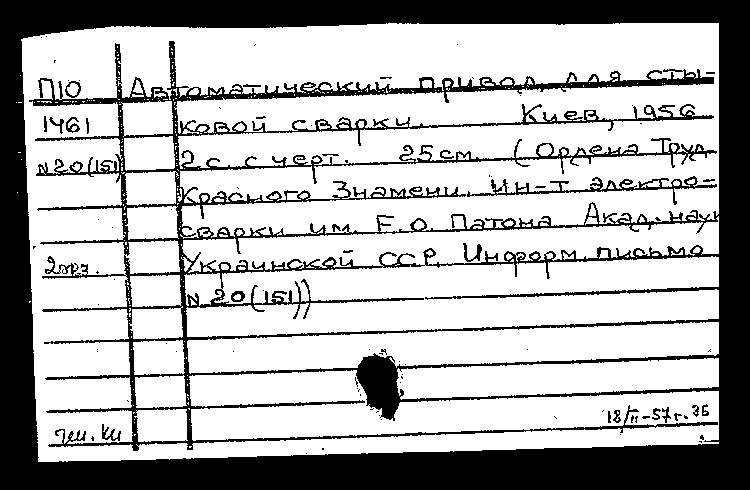 П10 Автоматический привод для сты-
1461 ковой сварки. Киев, 1956
N20(151) 2 с. с черт. 25 см. (Ордена Труд.
Красного Знамени Ин-т электро-
сварки им. Е.О. Патона Акад. наук
2экз. Украинской ССР. Информ. письмо
N 20(151))
18/II-57г.